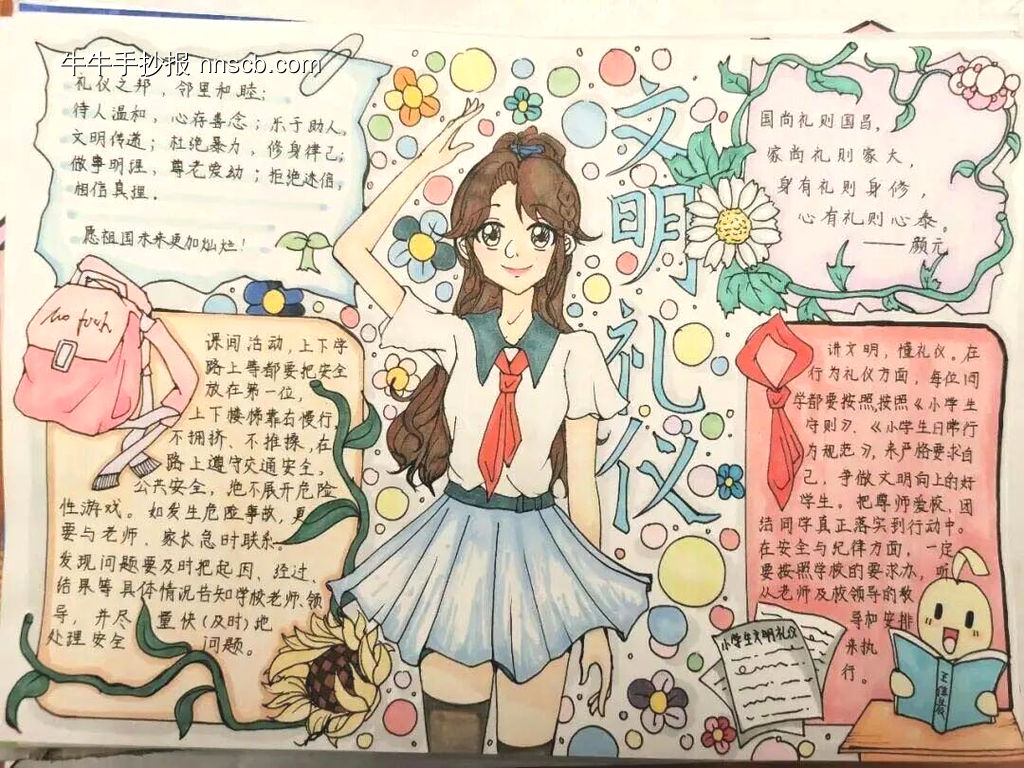 牛牛手抄报 nnscb.com
礼仪之邦，邻里和睦；
待人温和，心存善念；乐于助人，
文明传递；杜绝暴力，修身律己；
做事明理，尊老爱幼；拒绝迷信，
相信真理．
愿祖国未来更加灿烂！
文明礼仪
国尚礼则国昌，
家尚礼则家大，
身有礼则身修，
心有礼则心泰。
——颜元
课间活动，上下学
路上等都要把安全
放在第一位，
上下楼梯靠右慢行，
不拥挤、不推搡，在
路上遵守交通安全，
公共安全，绝不展开危险
性游戏。如发生危险事故，更
要与老师、家长急时联系。
发现问题要及时把起因、经过、
结果等具体情况告知学校老师、领
导，并尽量快(及时)地
处理安全问题。
讲文明，懂礼仪。在
行为礼仪方面，每位同
学都要按照按照《小学生
守则》、《小学生日常行
为规范》，来严格要求自
己，争做文明向上的好
学生。把尊师爱校、团
结同学真正落实到行动中。
在安全与纪律方面，一定
要按照学校的要求办，听
从老师及校领导的教
导和安排
来执
行。
小学生文明礼仪